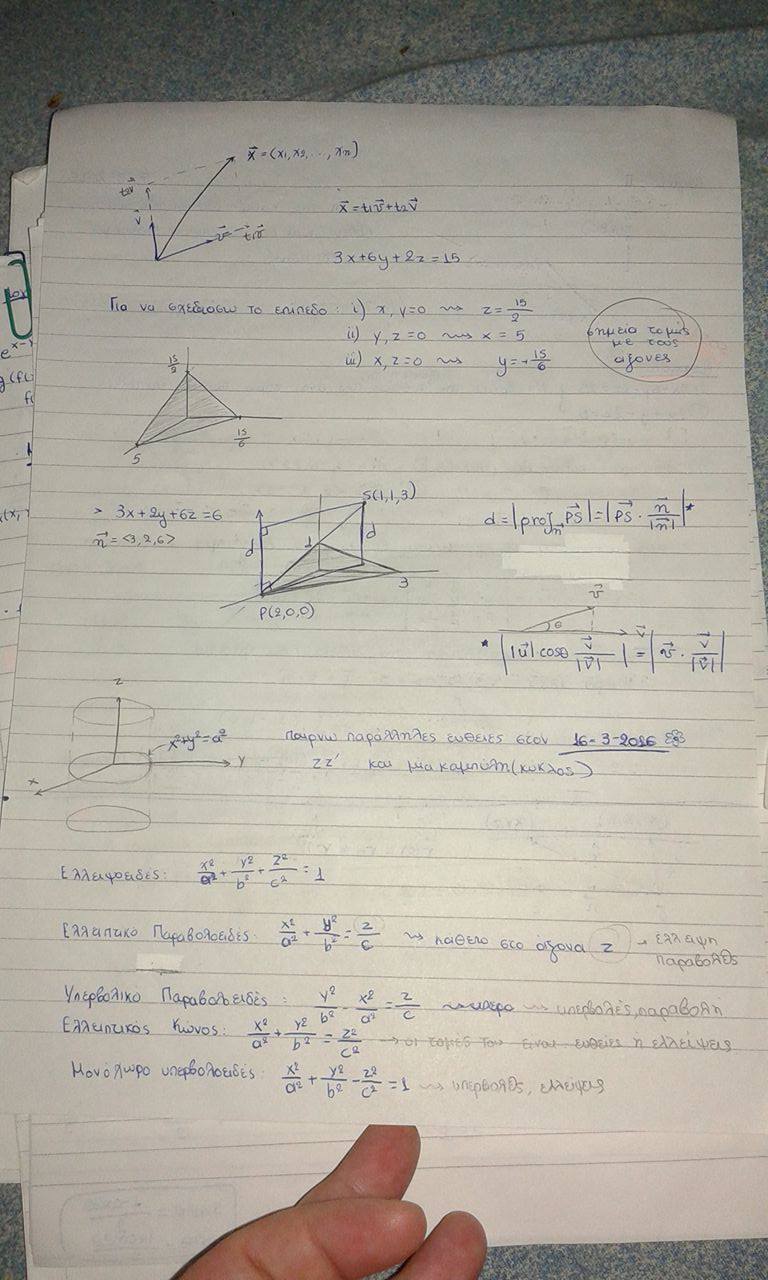 x⃗ = (x₁, x₂, ..., xₙ)
t₂v⃗
v⃗
t₁v⃗
x⃗ = t₁v⃗ + t₂v⃗
3x+6y+2z=15
Για να σχεδιασω το επιπεδο: i) x, y=0 ⇝ z = 15/2
ii) y, z=0 ⇝ x = 5
iii) x, z=0 ⇝ y = 15/6
σημεια τομής
με τους
άξονες
15/2
15/6
5
> 3x+2y+6z=6
n⃗ = <3,2,6>
S(1,1,3)
d
1
d
3
P(2,0,0)
d = |proj_n⃗ PS⃗| = |PS⃗ · n⃗/|n⃗||*
v⃗
θ
v⃗
* ||u⃗| cosθ v⃗/|v⃗|| = |v⃗ · v⃗/|v⃗||
z
x²+y²=a²
y
x
παιρνω παράλληλες ευθειες στον 16-3-2016
zz' και μια καμπύλη (κυκλος)
Ελλειψοειδές: x²/a² + y²/b² + z²/c² = 1
Ελλειπτικο Παραβολοειδές: x²/a² + y²/b² = z/c ⇝ κάθετο στο άξονα z → ελλειψη
παραβολές
Υπερβολικο Παραβολοειδές: y²/b² - x²/a² = z/c ⇝ υπερβολές, παραβολη
Ελλειπτικός Κωνος: x²/a² + y²/b² = z²/c² → οι τομές του ειναι ευθείες η ελλείψεις
Μονόχωρο υπερβολοειδές: x²/a² + y²/b² - z²/c² = 1 ⇝ υπερβολές, ελλείψεις